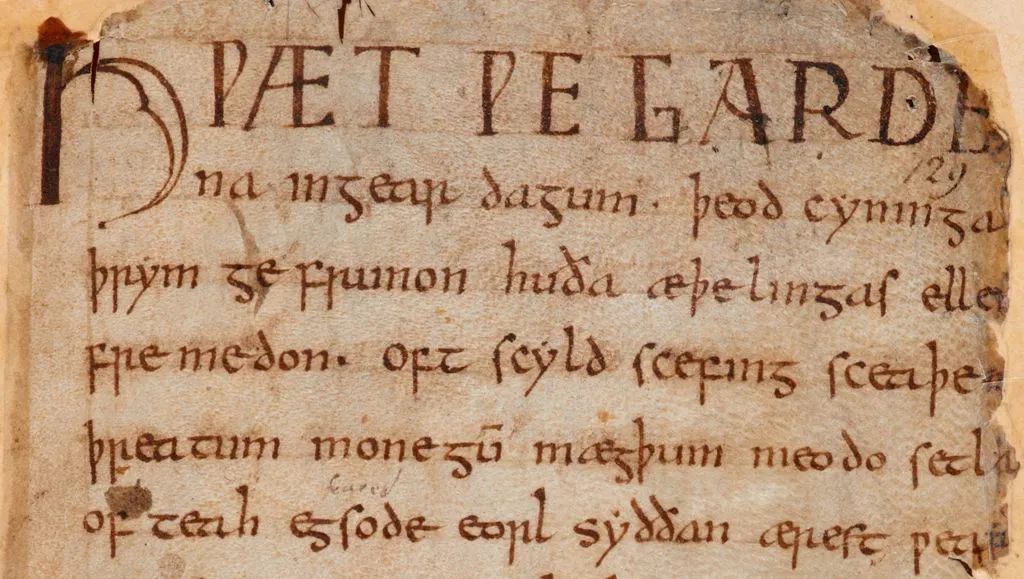 HǷÆT ǷE GARDE
129
na ingear dagum · þeod cyninga
þrym ge frunon huða æþelingas elle
fre medon. oft scyld scefing sceaþe
þreatum monegū mægþum meodo setla
of teah egsode eorl syððan ærest ƿear